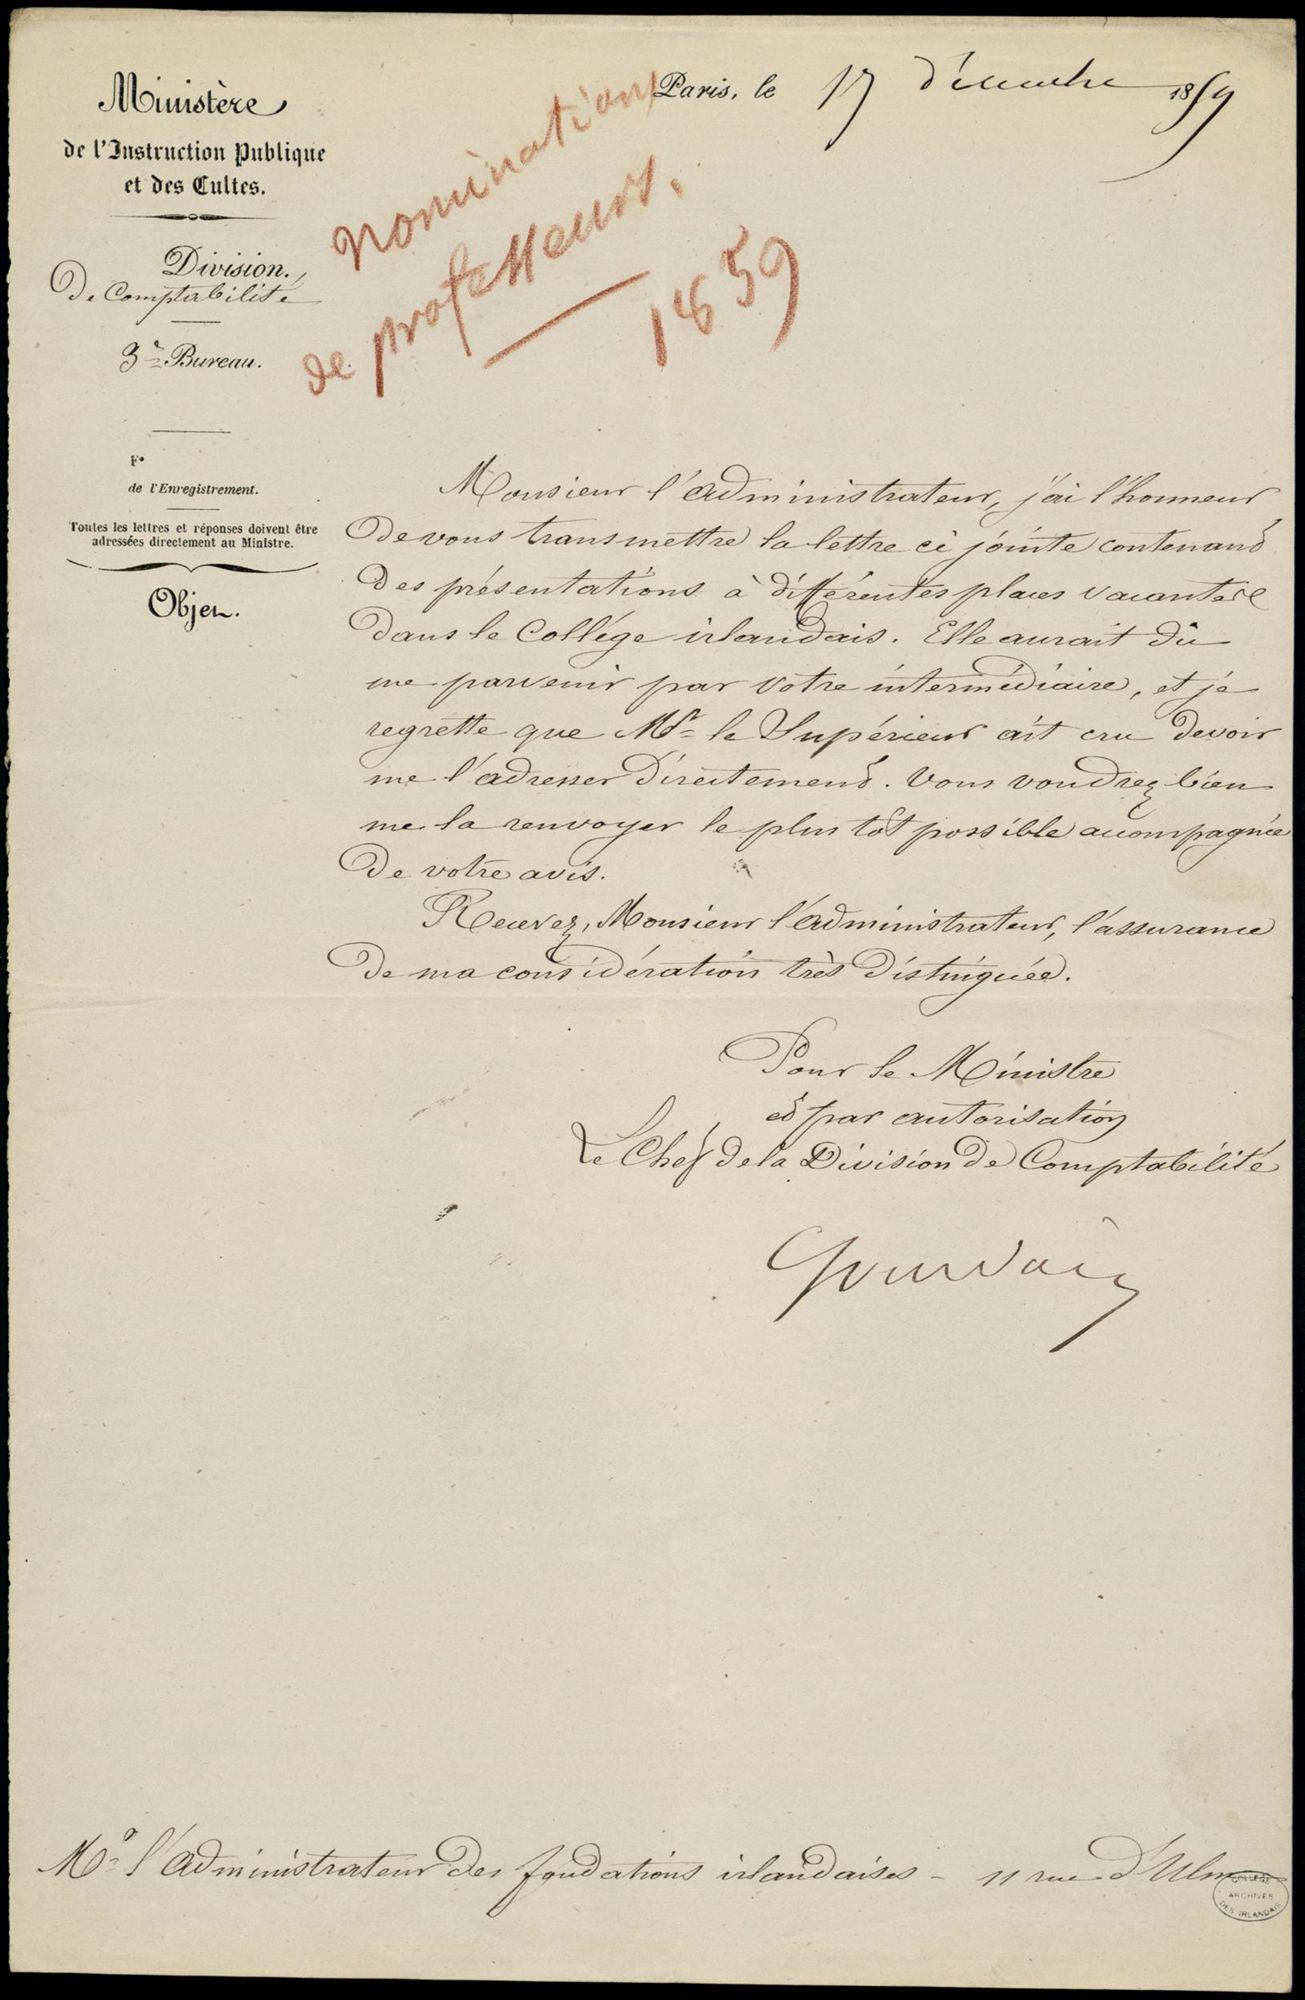 Ministère
de l'Instruction Publique
et des Cultes.
Division
de Comptabilité
3e Bureau.
F°
de l'Enregistrement.
Toutes les lettres et réponses doivent être
adressées directement au Ministre.
Objet.
Paris, le 17 décembre 1859
nominations
de professeurs.
1859
Monsieur l'administrateur, j'ai l'honneur
de vous transmettre la lettre ci jointe contenant
des présentations à différentes places vacantes
dans le Collége irlandais. Elle aurait dû
me parvenir par votre intermédiaire, et je
regrette que Mr le Supérieur ait cru devoir
me l'adresser directement. Vous voudrez bien
me la renvoyer le plus tôt possible accompagnée
de votre avis.
Recevez, Monsieur l'administrateur, l'assurance
de ma considération très distinguée.
Pour le Ministre
et par autorisation
Le Chef de la Division de Comptabilité
Jourdain
Mr l'administrateur des fondations irlandaises - 11 rue d'Ulm
COLLÈGE
ARCHIVES
DES IRLANDAIS